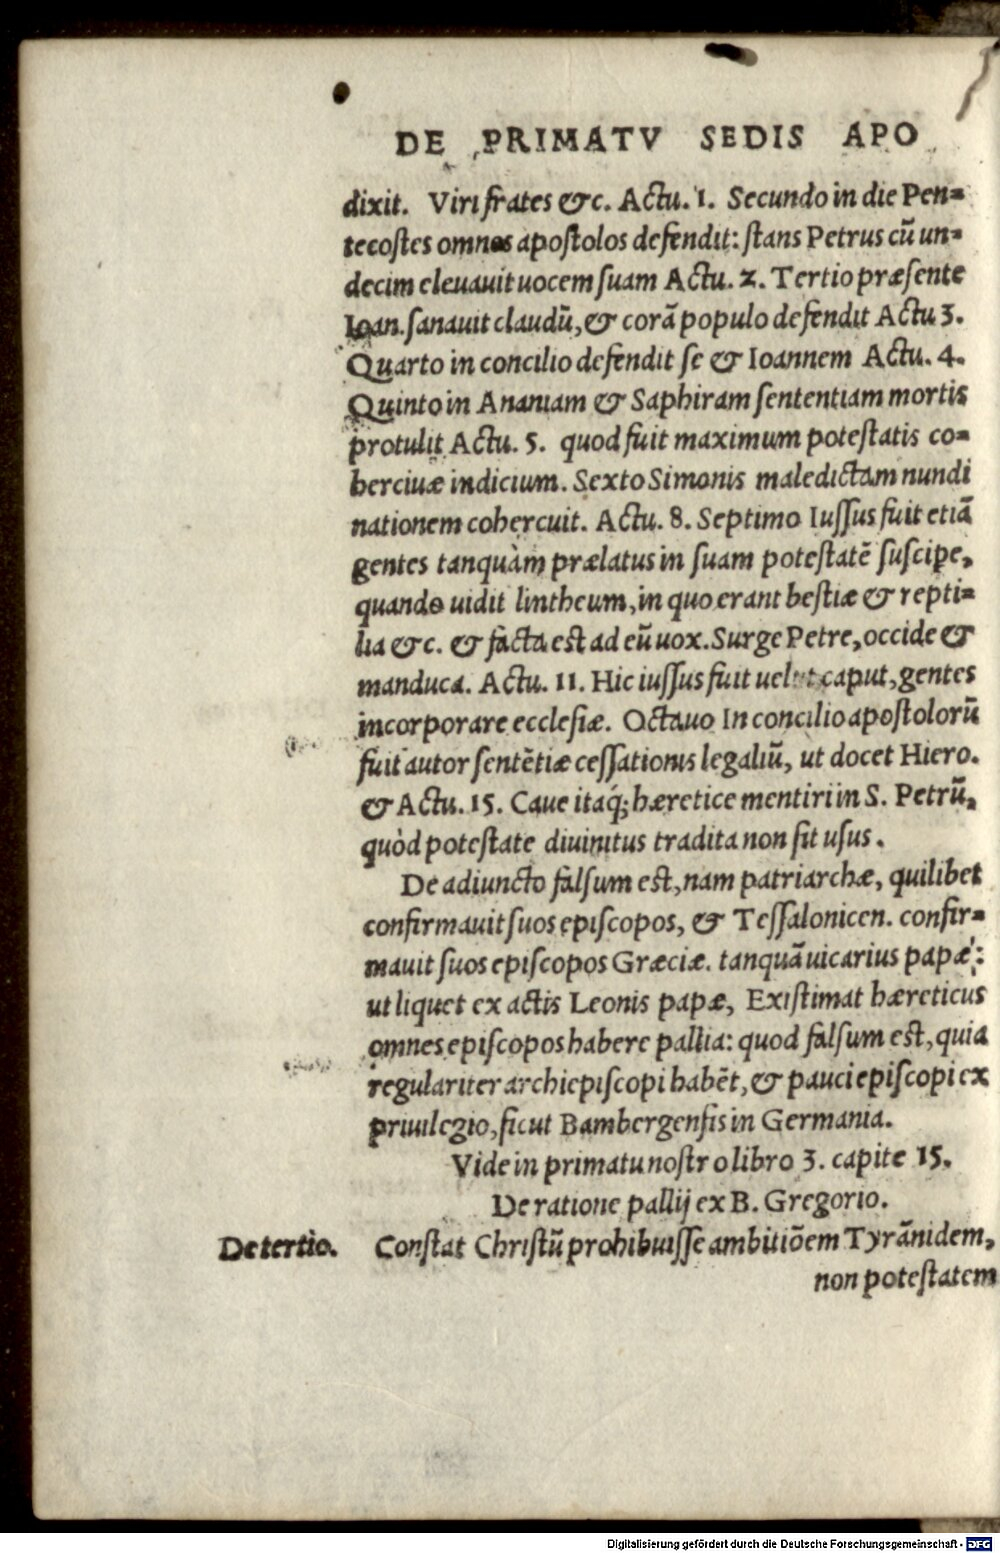 DE PRIMATV SEDIS APO
dixit. Viri frates &c. Actu. 1. Secundo in die Pen=
tecostes omnes apostolos defendit: stans Petrus cū un=
decim eleuauit uocem suam Actu. 2. Tertio præsente
Ioan. sanauit claudū, & corā populo defendit Actu 3.
Quarto in concilio defendit se & Ioannem Actu. 4.
Quinto in Ananiam & Saphiram sententiam mortis
protulit Actu. 5. quod fuit maximum potestatis co=
herciuæ indicium. Sexto Simonis maledictam nundi
nationem cohercuit. Actu. 8. Septimo Iussus fuit etiā
gentes tanquàm prælatus in suam potestatē suscipe,
quando uidit lintheum, in quo erant bestiæ & repti=
lia &c. & facta est ad eū uox. Surge Petre, occide &
manduca. Actu. 11. Hic iussus fuit uelut caput, gentes
incorporare ecclesiæ. Octauo In concilio apostolorū
fuit autor sentētiæ cessationis legaliū, ut docet Hiero.
& Actu. 15. Caue itaq́; hæretice mentiri in S. Petrū,
quòd potestate diuinitus tradita non sit usus.
De adiuncto falsum est, nam patriarchæ, quilibet
confirmauit suos episcopos, & Tessalonicen. confir=
mauit suos episcopos Græciæ. tanquā uicarius papæ:
ut liquet ex actis Leonis papæ, Existimat hæreticus
omnes episcopos habere pallia: quod falsum est, quia
regulariter archiepiscopi habēt, & pauci episcopi ex
priuilegio, sicut Bambergensis in Germania.
Vide in primatu nostro libro 3. capite 15.
De ratione pallij ex B. Gregorio.
De tertio. Constat Christū prohibuisse ambitiōem Tyrānidem,
non potestatem
Digitalisierung gefördert durch die Deutsche Forschungsgemeinschaft - DFG